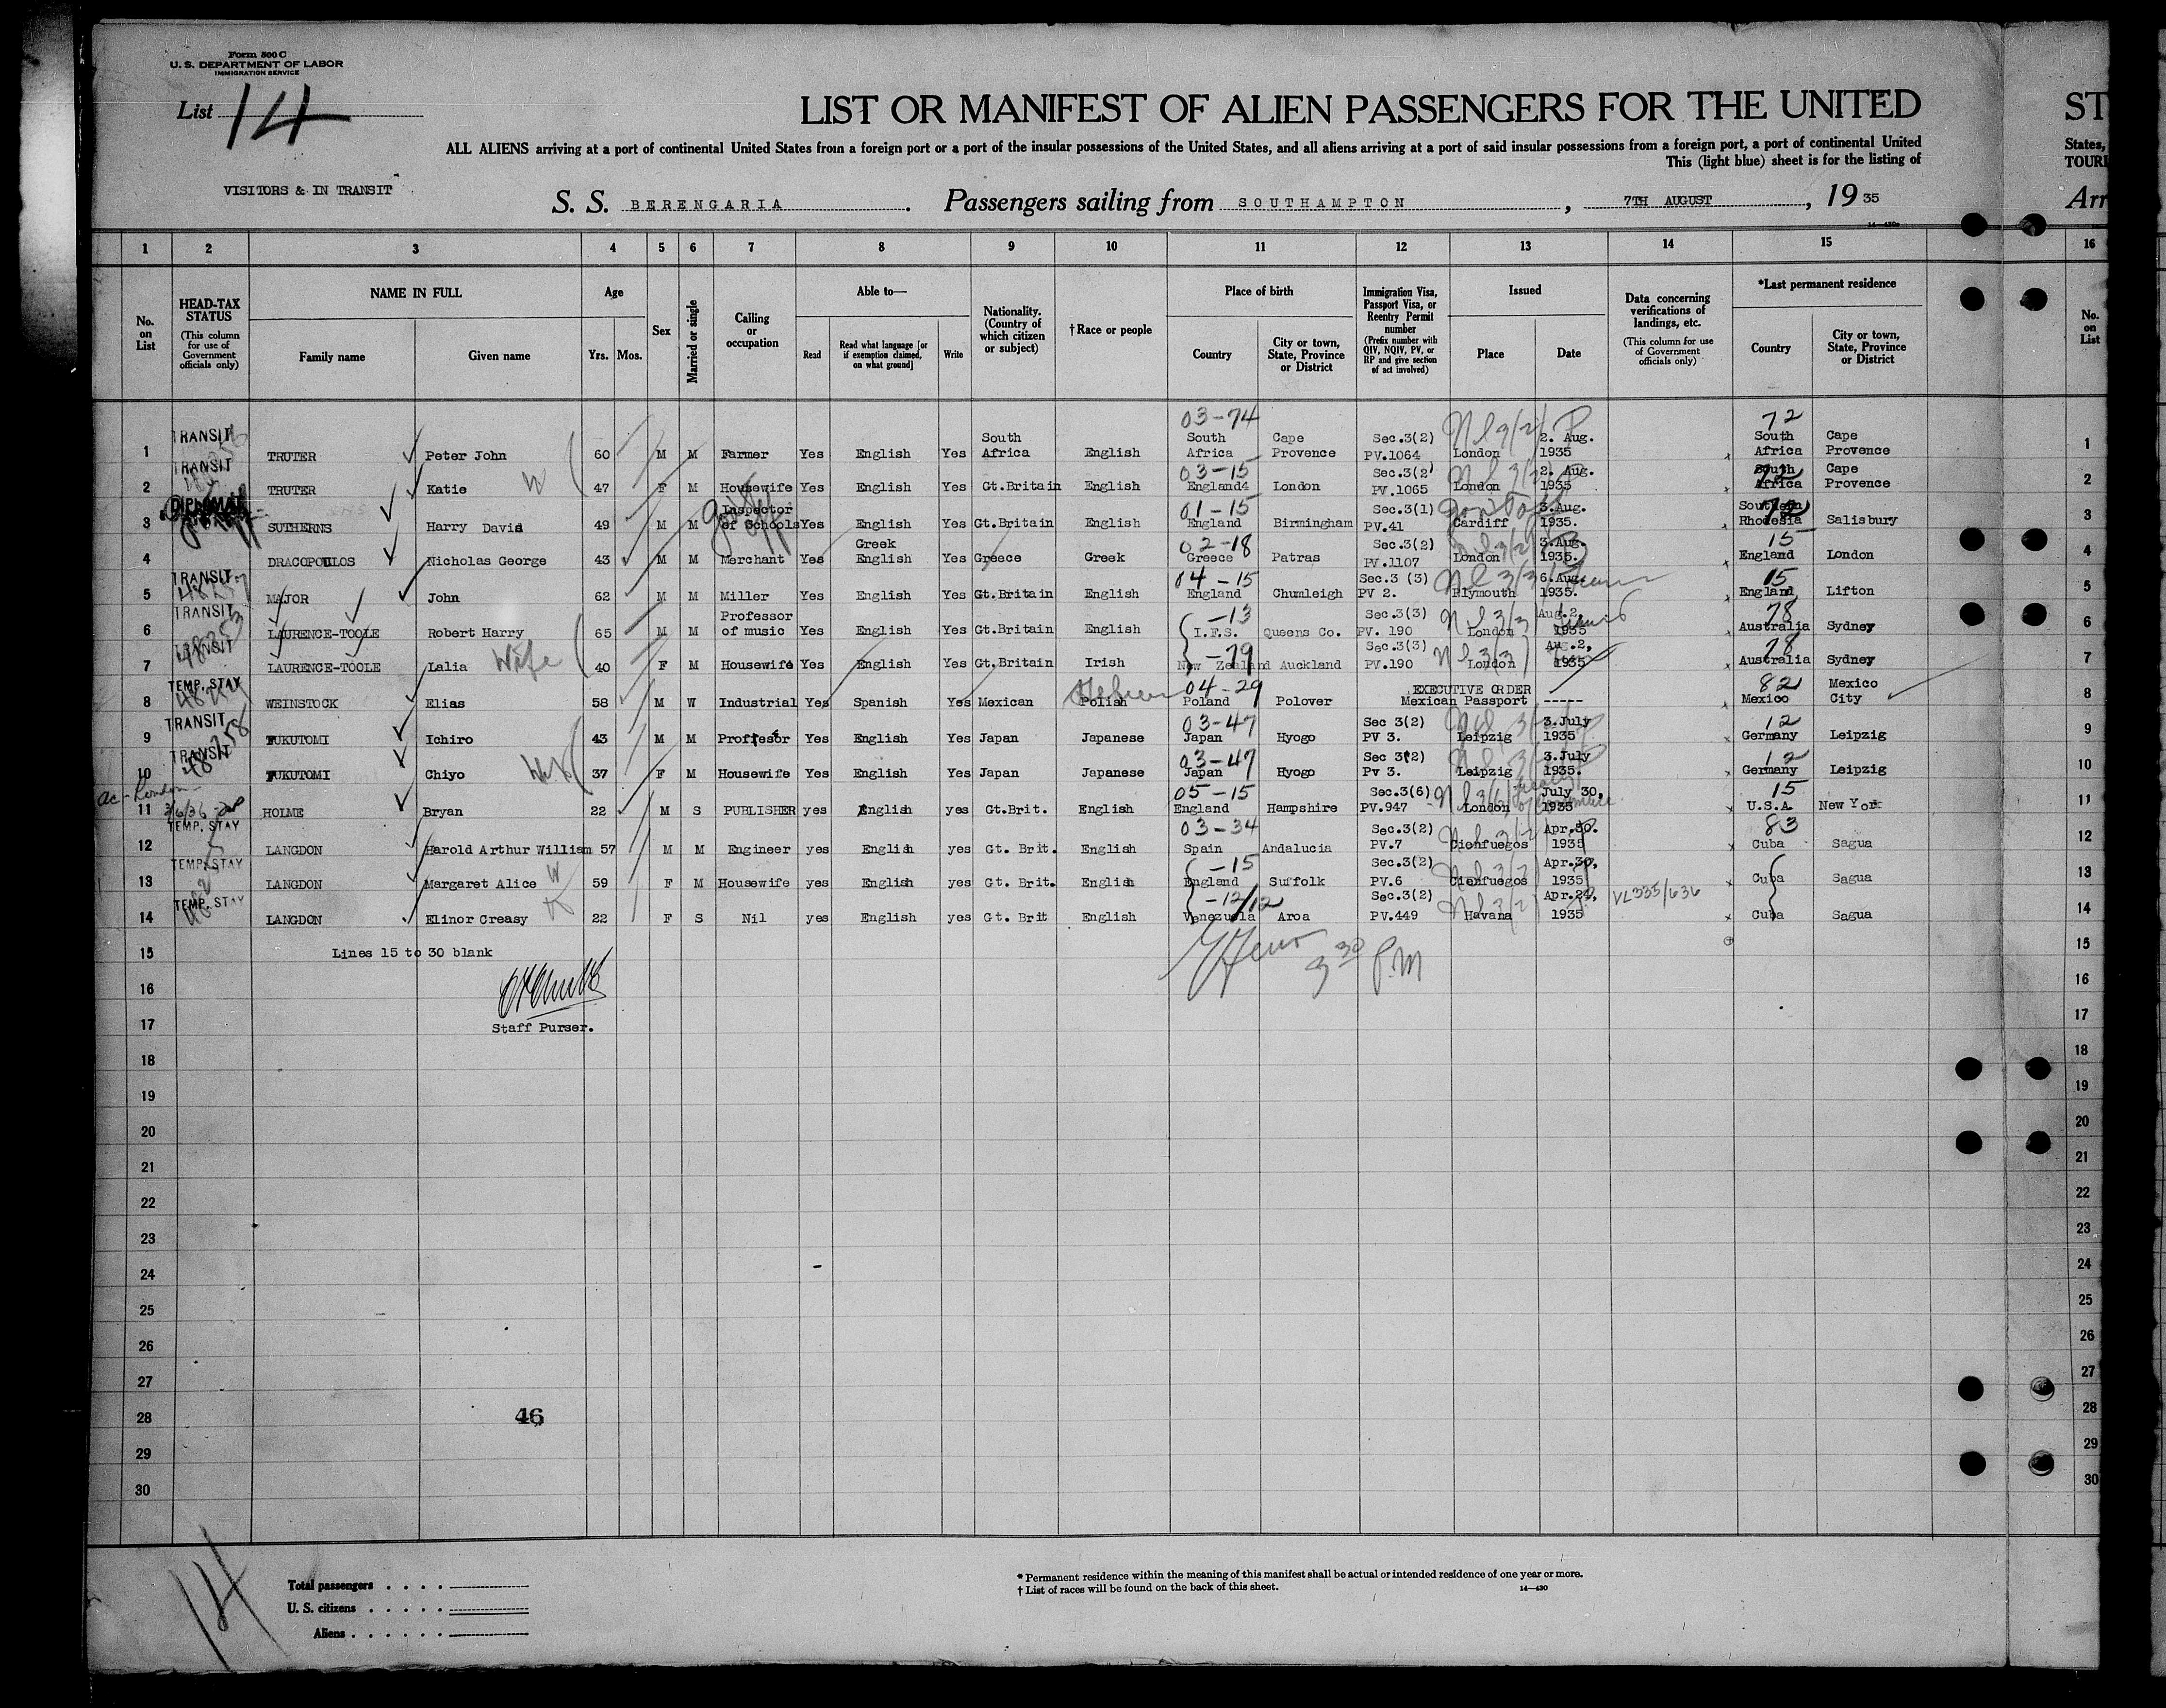 Form 500 C
U. S. DEPARTMENT OF LABOR
IMMIGRATION SERVICE
List 14
LIST OR MANIFEST OF ALIEN PASSENGERS FOR THE UNITED
ST
ALL ALIENS arriving at a port of continental United States from a foreign port or a port of the insular possessions of the United States, and all aliens arriving at a port of said insular possessions from a foreign port, a port of continental United
States,
This (light blue) sheet is for the listing of
TOURI
VISITORS & IN TRANSIT
S. S. BERENGARIA. Passengers sailing from SOUTHAMPTON, 7TH AUGUST, 1935
Arr
1 2 3 4 5 6 7 8 9 10 11 12 13 14 15 16
No. on List
HEAD-TAX STATUS (This column for use of Government officials only)
NAME IN FULL
Family name Given name
Age
Yrs. Mos.
Sex
Married or single
Calling or occupation
Able to—
Read
Read what language [or if exemption claimed, on what ground]
Write
Nationality. (Country of which citizen or subject)
†Race or people
Place of birth
Country
City or town, State, Province or District
Immigration Visa, Passport Visa, or Reentry Permit number (Prefix number with QIV, NQIV, PV, or RP and give section of act involved)
Issued
Place Date
Data concerning verifications of landings, etc. (This column for use of Government officials only)
*Last permanent residence
Country
City or town, State, Province or District
No. on List
1 TRANSIT TRUTER Peter John 60 M M Farmer Yes English Yes South Africa English 03-74 South Africa Cape Provence Sec.3(2) PV.1064 London 2. Aug. 1935 72 South Africa Cape Provence 1
2 TRANSIT TRUTER Katie W 47 F M Housewife Yes English Yes Gt.Britain English 03-15 England4 London Sec.3(2) PV.1065 London 2. Aug. 1935 72 South Africa Cape Provence 2
3 SUTHERNS Harry Davis 49 M M Inspector of Schools Yes English Yes Gt.Britain English 01-15 England Birmingham Sec.3(1) PV.41 Cardiff 3.Aug. 1935. 72 Southern Rhodesia Salisbury 3
4 DRACOPOULOS Nicholas George 43 M M Merchant Yes Greek English Yes Greece Greek 02-18 Greece Patras Sec.3(2) PV.1107 London 3.Aug. 1935. 15 England London 4
5 TRANSIT MAJOR John 62 M M Miller Yes English Yes Gt.Britain English 04-15 England Chumleigh Sec.3 (3) PV 2. Plymouth 6.Aug. 1935. 15 England Lifton 5
6 TRANSIT LAURENCE-TOOLE Robert Harry 65 M M Professor of music Yes English Yes Gt.Britain English -13 I.F.S. Queens Co. Sec.3(3) PV. 190 London Aug.2, 1935 78 Australia Sydney 6
7 TRANSIT LAURENCE-TOOLE Lalia Wife 40 F M Housewife Yes English Yes Gt.Britain Irish -79 New Zealand Auckland Sec.3(3) PV.190 London Au .2, 1935 78 Australia Sydney 7
8 TEMP. STAY WEINSTOCK Elias 58 M W Industrial Yes Spanish Yes Mexican Polish Hebrew 04-29 Poland Polover EXECUTIVE ORDER Mexican Passport ----- 82 Mexico Mexico City 8
9 TRANSIT FUKUTOMI Ichiro 43 M M Proffesor Yes English Yes Japan Japanese 03-47 Japan Hyogo Sec 3(2) PV 3. Leipzig 3.July 1935 12 Germany Leipzig 9
10 TRANSIT FUKUTOMI Chiyo 37 F M Housewife Yes English Yes Japan Japanese 03-47 Japan Hyogo Sec 3(2) Pv 3. Leipzig 3.July 1935. 12 Germany Leipzig 10
11 HOLME Bryan 22 M S PUBLISHER yes English yes Gt.Brit. English 05-15 England Hampshire Sec.3(6) PV.947 London July 30, 1935 15 U.S.A. New York 11
12 TEMP. STAY LANGDON Harold Arthur William 57 M M Engineer yes English yes Gt. Brit. English 03-34 Spain Andalucia Sec.3(2) PV.7 Cienfuegos Apr.30. 1935 83 Cuba Sagua 12
13 TEMP. STAY LANGDON Margaret Alice W 59 F M Housewife yes English yes Gt. Brit. English -15 England Suffolk Sec.3(2) PV.6 Cienfuegos Apr.30, 1935 Cuba Sagua 13
14 TEMP. STAY LANGDON Elinor Creasy 22 F S Nil yes English yes Gt. Brit English -12/12 Venezuela Aroa Sec.3(2) PV.449 Havana Apr.24, 1935 VL335/636 Cuba Sagua 14
15 Lines 15 to 30 blank 15
3 30 P.M
16 16
17 Staff Purser. 17
18 18
19 19
20 20
21 21
22 22
23 23
24 24
25 25
26 26
27 27
28 46 28
29 29
30 30
14
Total passengers . . . .
U. S. citizens . . . . .
Aliens . . . . . .
* Permanent residence within the meaning of this manifest shall be actual or intended residence of one year or more.
† List of races will be found on the back of this sheet. 14—430